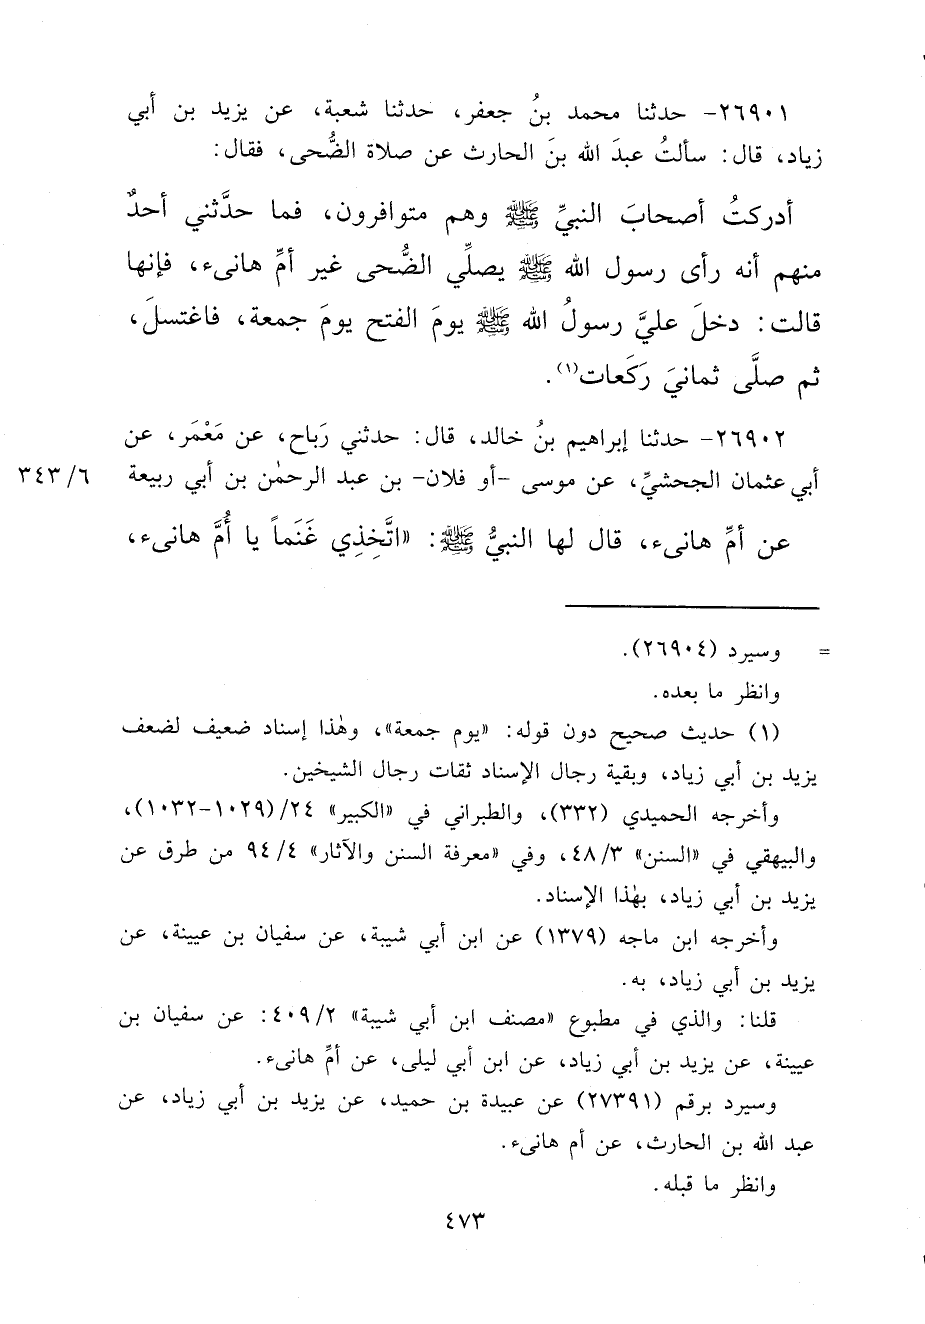 ٢٦٩٠١- حدثنا محمد بنُ جعفر، حدثنا شعبة، عن يزيد بن أبي
زياد، قال: سألتُ عبدَ الله بنَ الحارث عن صلاة الضُّحى، فقال:
أدركتُ أصحابَ النبيِّ ﷺ وهم متوافرون، فما حدَّثني أحدٌ
منهم أنه رأى رسول الله ﷺ يصلِّي الضُّحى غير أمِّ هانىء، فإنها
قالت: دخلَ عليَّ رسولُ الله ﷺ يومَ الفتح يومَ جمعة، فاغتسلَ،
ثم صلَّى ثمانيَ رَكَعات(١).
٢٦٩٠٢- حدثنا إبراهيم بنُ خالد، قال: حدثني رَباح، عن مَعْمَر، عن
أبي عثمان الجحشيِّ، عن موسى -أو فلان- بن عبد الرحمٰن بن أبي ربيعة ٣٤٣/٦
عن أمِّ هانىء، قال لها النبيُّ ﷺ: «اتَّخِذِي غَنَماً يا أُمَّ هانىء،
= وسيرد (٢٦٩٠٤).
وانظر ما بعده.
(١) حديث صحيح دون قوله: «يوم جمعة»، وهٰذا إسناد ضعيف لضعف
يزيد بن أبي زياد، وبقية رجال الإسناد ثقات رجال الشيخين.
وأخرجه الحميدي (٣٣٢)، والطبراني في «الكبير» ٢٤/(١٠٢٩-١٠٣٢)،
والبيهقي في «السنن» ٤٨/٣، وفي «معرفة السنن والآثار» ٩٤/٤ من طرق عن
يزيد بن أبي زياد، بهٰذا الإسناد.
وأخرجه ابن ماجه (١٣٧٩) عن ابن أبي شيبة، عن سفيان بن عيينة، عن
يزيد بن أبي زياد، به.
قلنا: والذي في مطبوع «مصنف ابن أبي شيبة» ٤٠٩/٢: عن سفيان بن
عيينة، عن يزيد بن أبي زياد، عن ابن أبي ليلى، عن أمِّ هانىء.
وسيرد برقم (٢٧٣٩١) عن عبيدة بن حميد، عن يزيد بن أبي زياد، عن
عبد الله بن الحارث، عن أم هانىء.
وانظر ما قبله.
٤٧٣